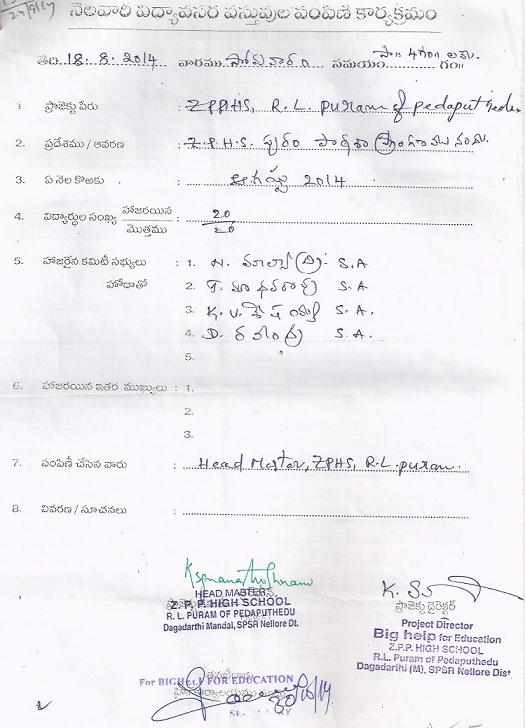 24/9/14
నెలవారి విద్యావసర వస్తువుల పంపిణి కార్యక్రమం
తేది 18.8.2014 వారము సోమవారం సమయం సా॥ 4గం॥లకు గం॥
1. ప్రాజెక్టు పేరు : ZPPHS, R.L. puram of pedaputhedu
2. ప్రదేశము / ఆవరణ : Z.P.H.S. పురం
3. ఏ నెల కొఱకు : ఆగష్టు 2014
4. విద్యార్థుల సంఖ్య హాజరయిన / మొత్తము : 20 / 20
5. హాజరైన కమిటీ సభ్యులు : 1. N. S.A
హోదాతో 2. T. మాధవరావు S.A
3. K.V. శేషయ్య S.A.
4. D. రవీంద్ర S.A.
5.
6. హాజరయిన ఇతర ముఖ్యులు : 1.
2.
3.
7. పంపిణీ చేసిన వారు : Head Master, ZPHS, R.L. puram.
8. వివరణ / సూచనలు :
HEAD MASTER
Z.P.P. HIGH SCHOOL
R. L. PURAM OF PEDAPUTHEDU
Dagadarthi Mandal, SPSR Nellore Dt.
ప్రాజెక్టు డైరెక్టర్
Project Director
Big help for Education
Z.P.P. HIGH SCHOOL
R.L. Puram of Pedaputhedu
Dagadarthi (M), SPSR Nellore Dist
For BIGHELP FOR EDUCATION